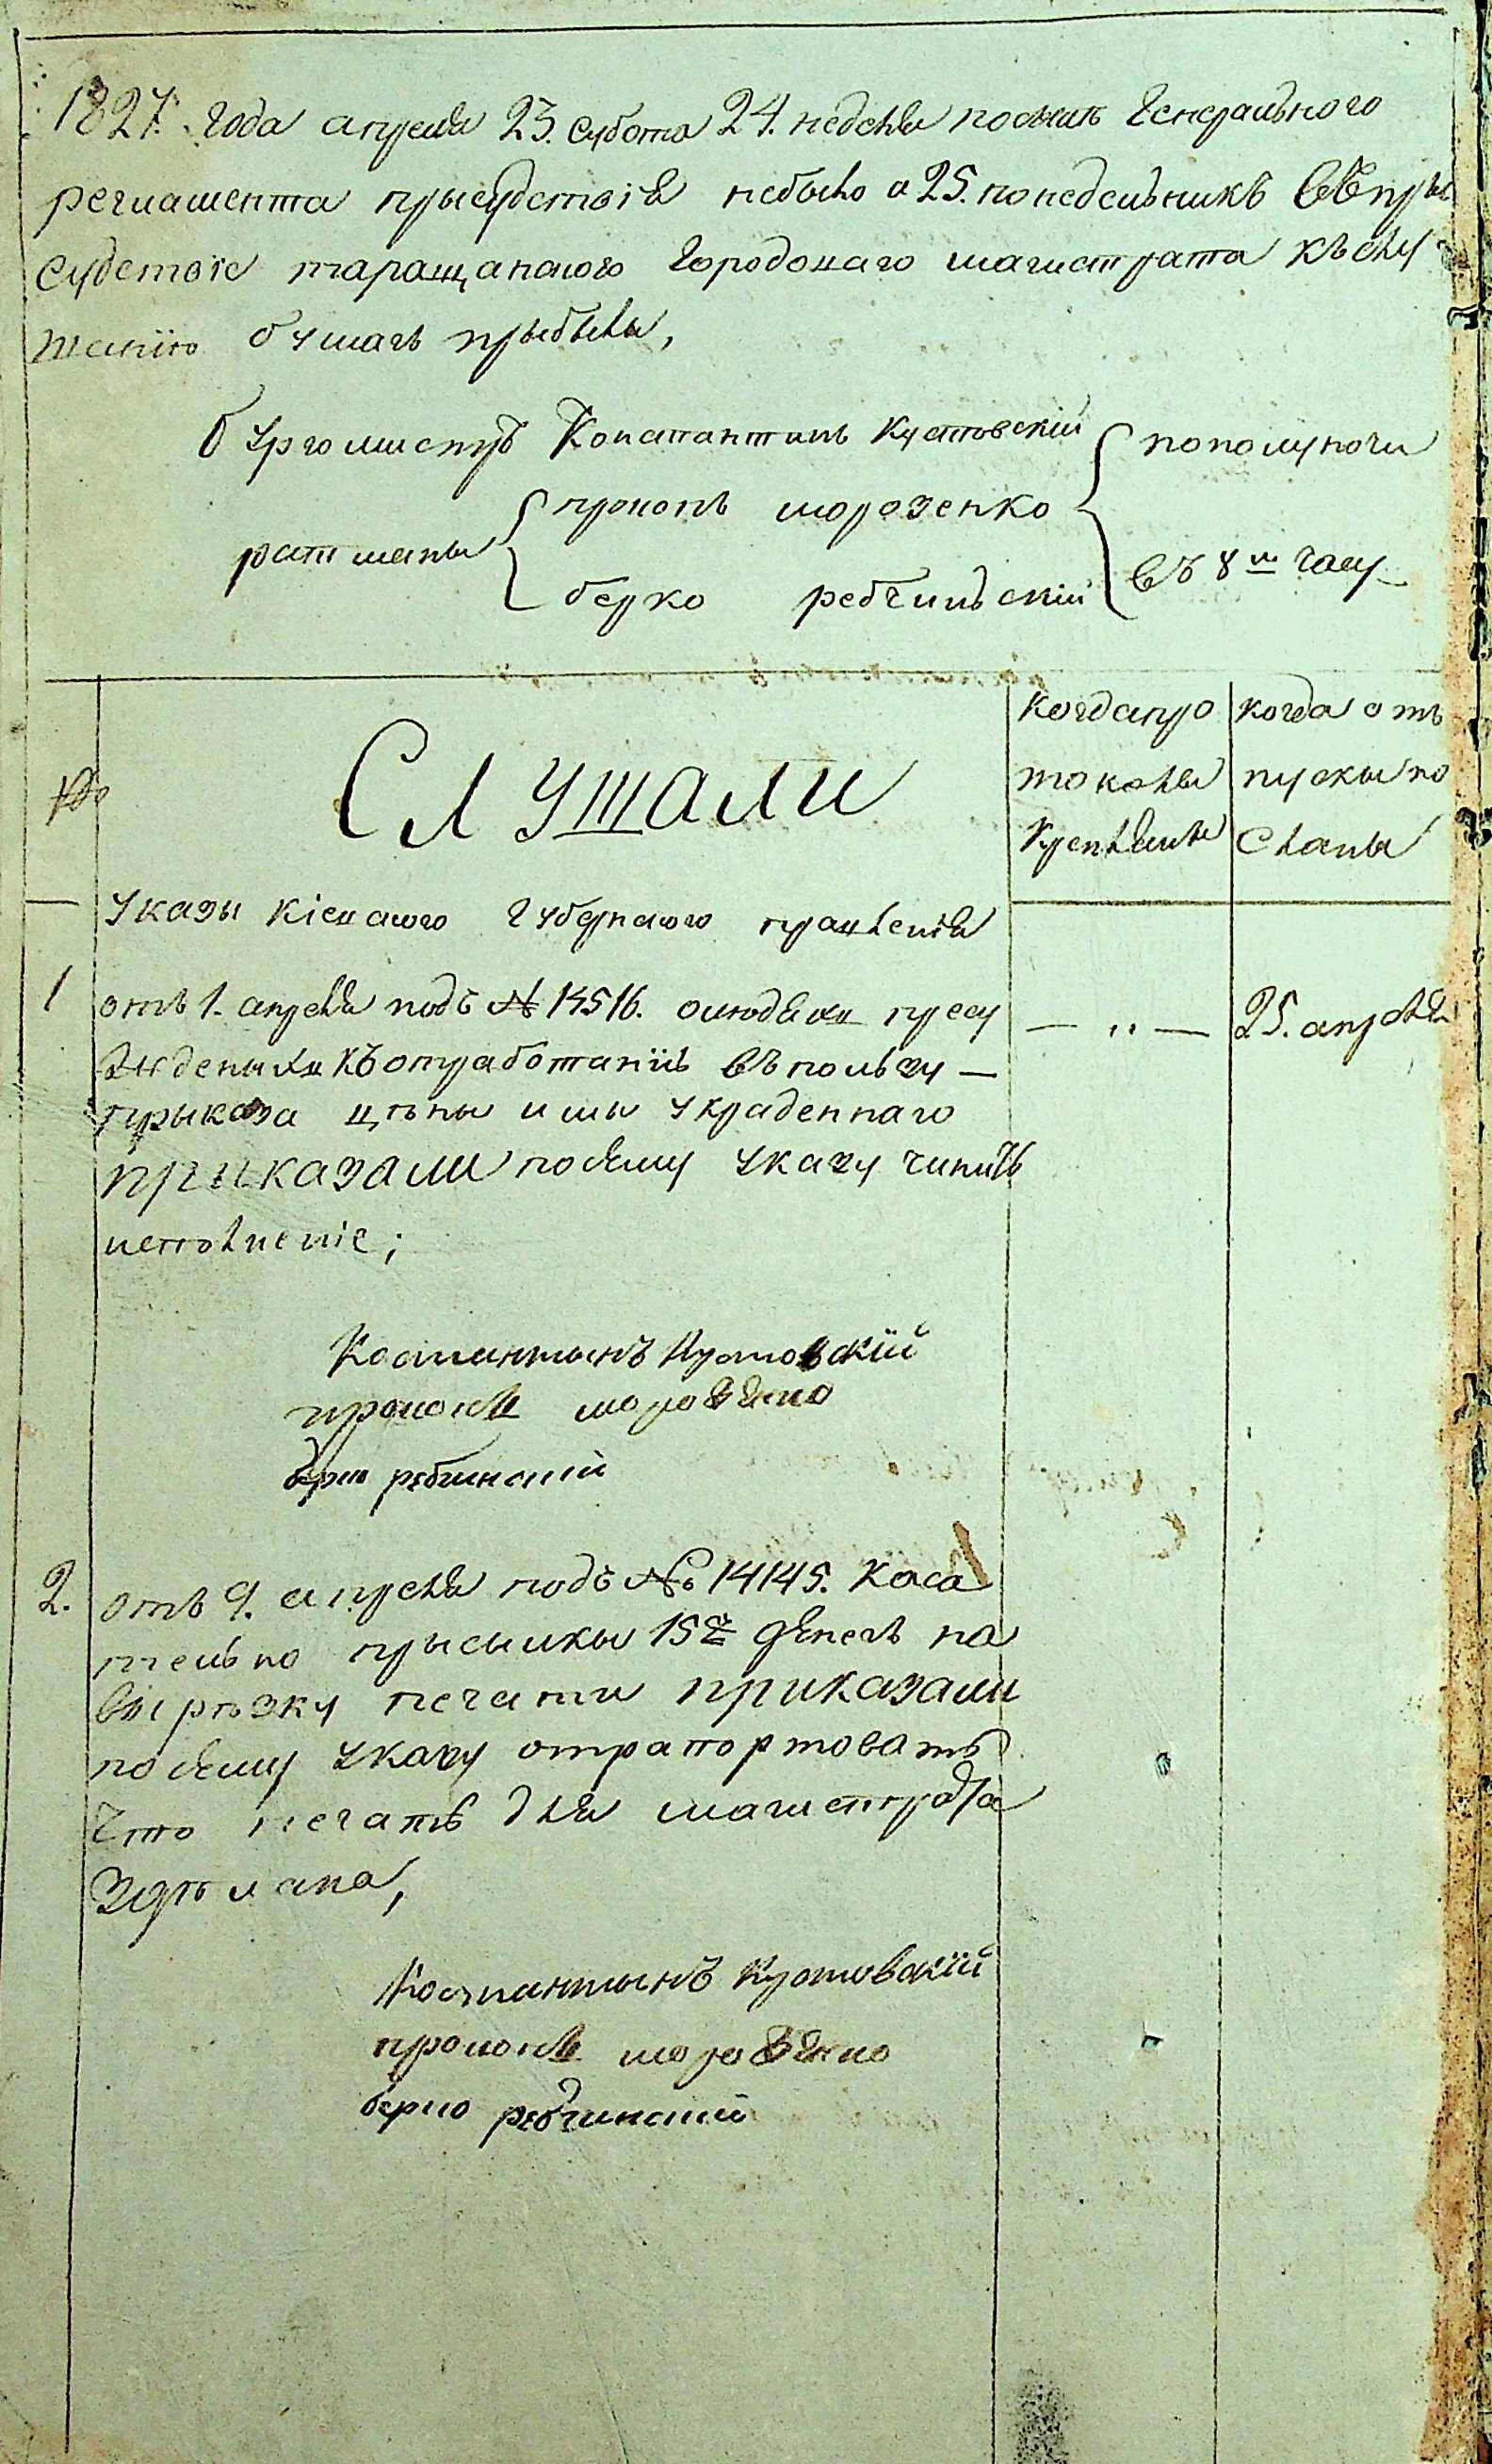 1827. года апреля 23. субота 24. неделя посиле Генерального
регламента прысудствія небыло а 25. понедельникъ въ пры
судствіе таращанского Городоваго магистрата къ слу
шанію бумагъ прыбылы,
Бургомистръ Константинъ Кустовскій
пополуночи
ратманы
прокопъ морозенко
берко ребчиньскій
въ 8м часу
когда про
токолы
Крепълены
когда отъ
пускы по
сланы
№
Слушали
Указы Кіевского Губернского правленія
1 отъ 1. апреля подъ № 14516. олюдяхъ прису
жденыхъ къ отработанію въ пользу —
прыказа цены имы украденнаго
приказали посему указу чинить
исполненіе;
— „ — 25. апреля
Костантынъ Кустовскій
прокопъ морозенко
берко ребчинский
2. отъ 9. апреля подъ № 14145. каса
тельно прысылкы 15 р денегъ на
вырезку печати приказали
посему указу отрапортовать
что печать для магистрата
зделана,
Костантынъ Кустовскій
прокопъ морозенко
берко ребчинский